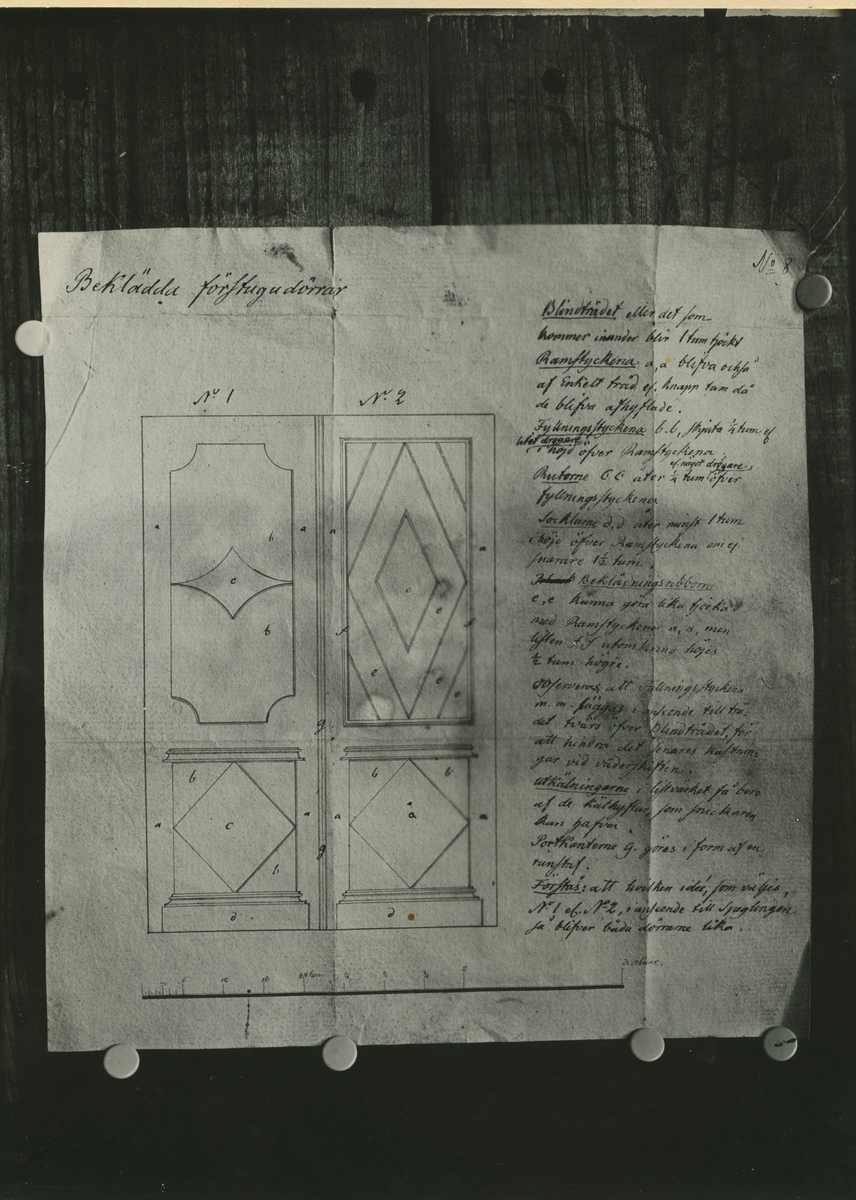 No 8
Beklädda förstugudörrar
No 1
No 2
Blindträdet eller det som
kommer inander blir 1 tum tjockt
Ramstyckena a, a blifva också
af Enkelt träd el. knapp tum då
de blifva afhyflade.
Fyllningsstyckena b. b, skjuta ¼ tum el
litet drygare
i höjd öfver Ramstyckena
el. något drygare,
Rutorne C C åter ¼ tum öfver
fyllningsstyckena
Socklarne d, d åter minst 1 tum
i höjd öfver Ramstyckena om ej
snarare 1½ tum.
Beklädningsribborne
e, e kunna göra lika tjocka
med Ramstyckena a, a, men
listen f. f utomkring höjes
½ tum högre.
Observeras, att Fyllningsstyckena
m. m. läggas i anseende till trä-
det tvärs öfver Blindträdet, för
att hindra det senares kastnin-
gar vid väderskiften.
Utkälningarne i listvärket få bero
af de kälhyflar, som snickaren
kan hafva.
Portkanterne g. göres i form af en
runstaf.
Förstås: att hvilken idée, som väljes,
No 1 el. No 2, i anseende till Speglingen
så blifver båda dörrarne lika.
a b a a a
c c
b e
f f
e e e
g
b b b
a c a a a a
b g
d d
24 tum
3 alnar.